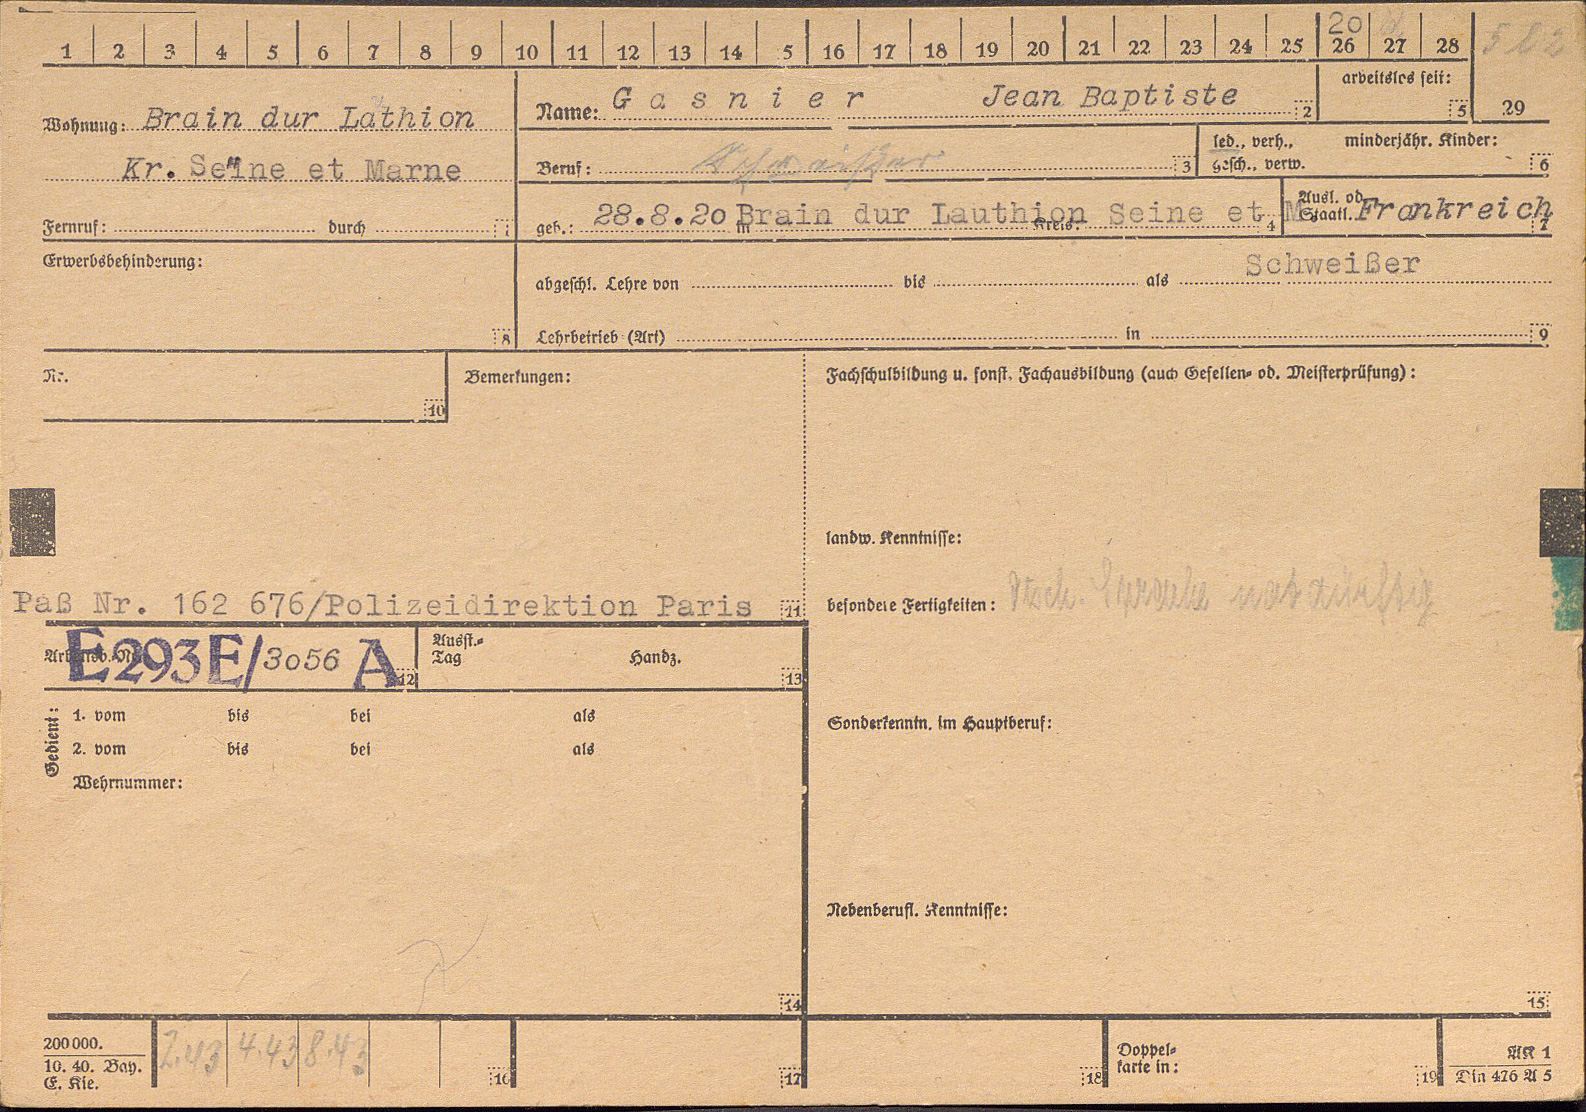 1 2 3 4 5 6 7 8 9 10 11 12 13 14 5 16 17 18 19 20 21 22 23 24 25 26 27 28
20
Wohnung: Brain dur Lathion
Kr. Seine et Marne
Fernruf: durch 1
Name: Gasnier Jean Baptiste 2
arbeitslos seit: 5 29
Beruf: Schweißer 3
led., verh., minderjähr. Kinder:
gesch., verw. 6
geb.: 28.8.20 in Brain dur Lauthion Seine et M. Kreis: 4
Ausl. od. Staatl. Frankreich 7
Erwerbsbehinderung:
8
Schweißer
abgeschl. Lehre von bis als
Lehrbetrieb (Art) in 9
Nr. 10
Bemerkungen:
Fachschulbildung u. sonst. Fachausbildung (auch Gesellen- od. Meisterprüfung):
landw. Kenntnisse:
Paß Nr. 162 676/Polizeidirektion Paris 11
besondere Fertigkeiten: Sprache
Arbeitsb.-Nr. E293E/3056 A 12
Ausst.-Tag Handz. 13
Gedient:
1. vom bis bei als
2. vom bis bei als
Wehrnummer:
Sonderkenntn. im Hauptberuf:
Nebenberufl. Kenntnisse:
14 15
200000.
10. 40. Bay.
E. Kie.
2.43 4.43 8.43
16 17 18
Doppel-
karte in: 19
AK 1
Din 476 A 5